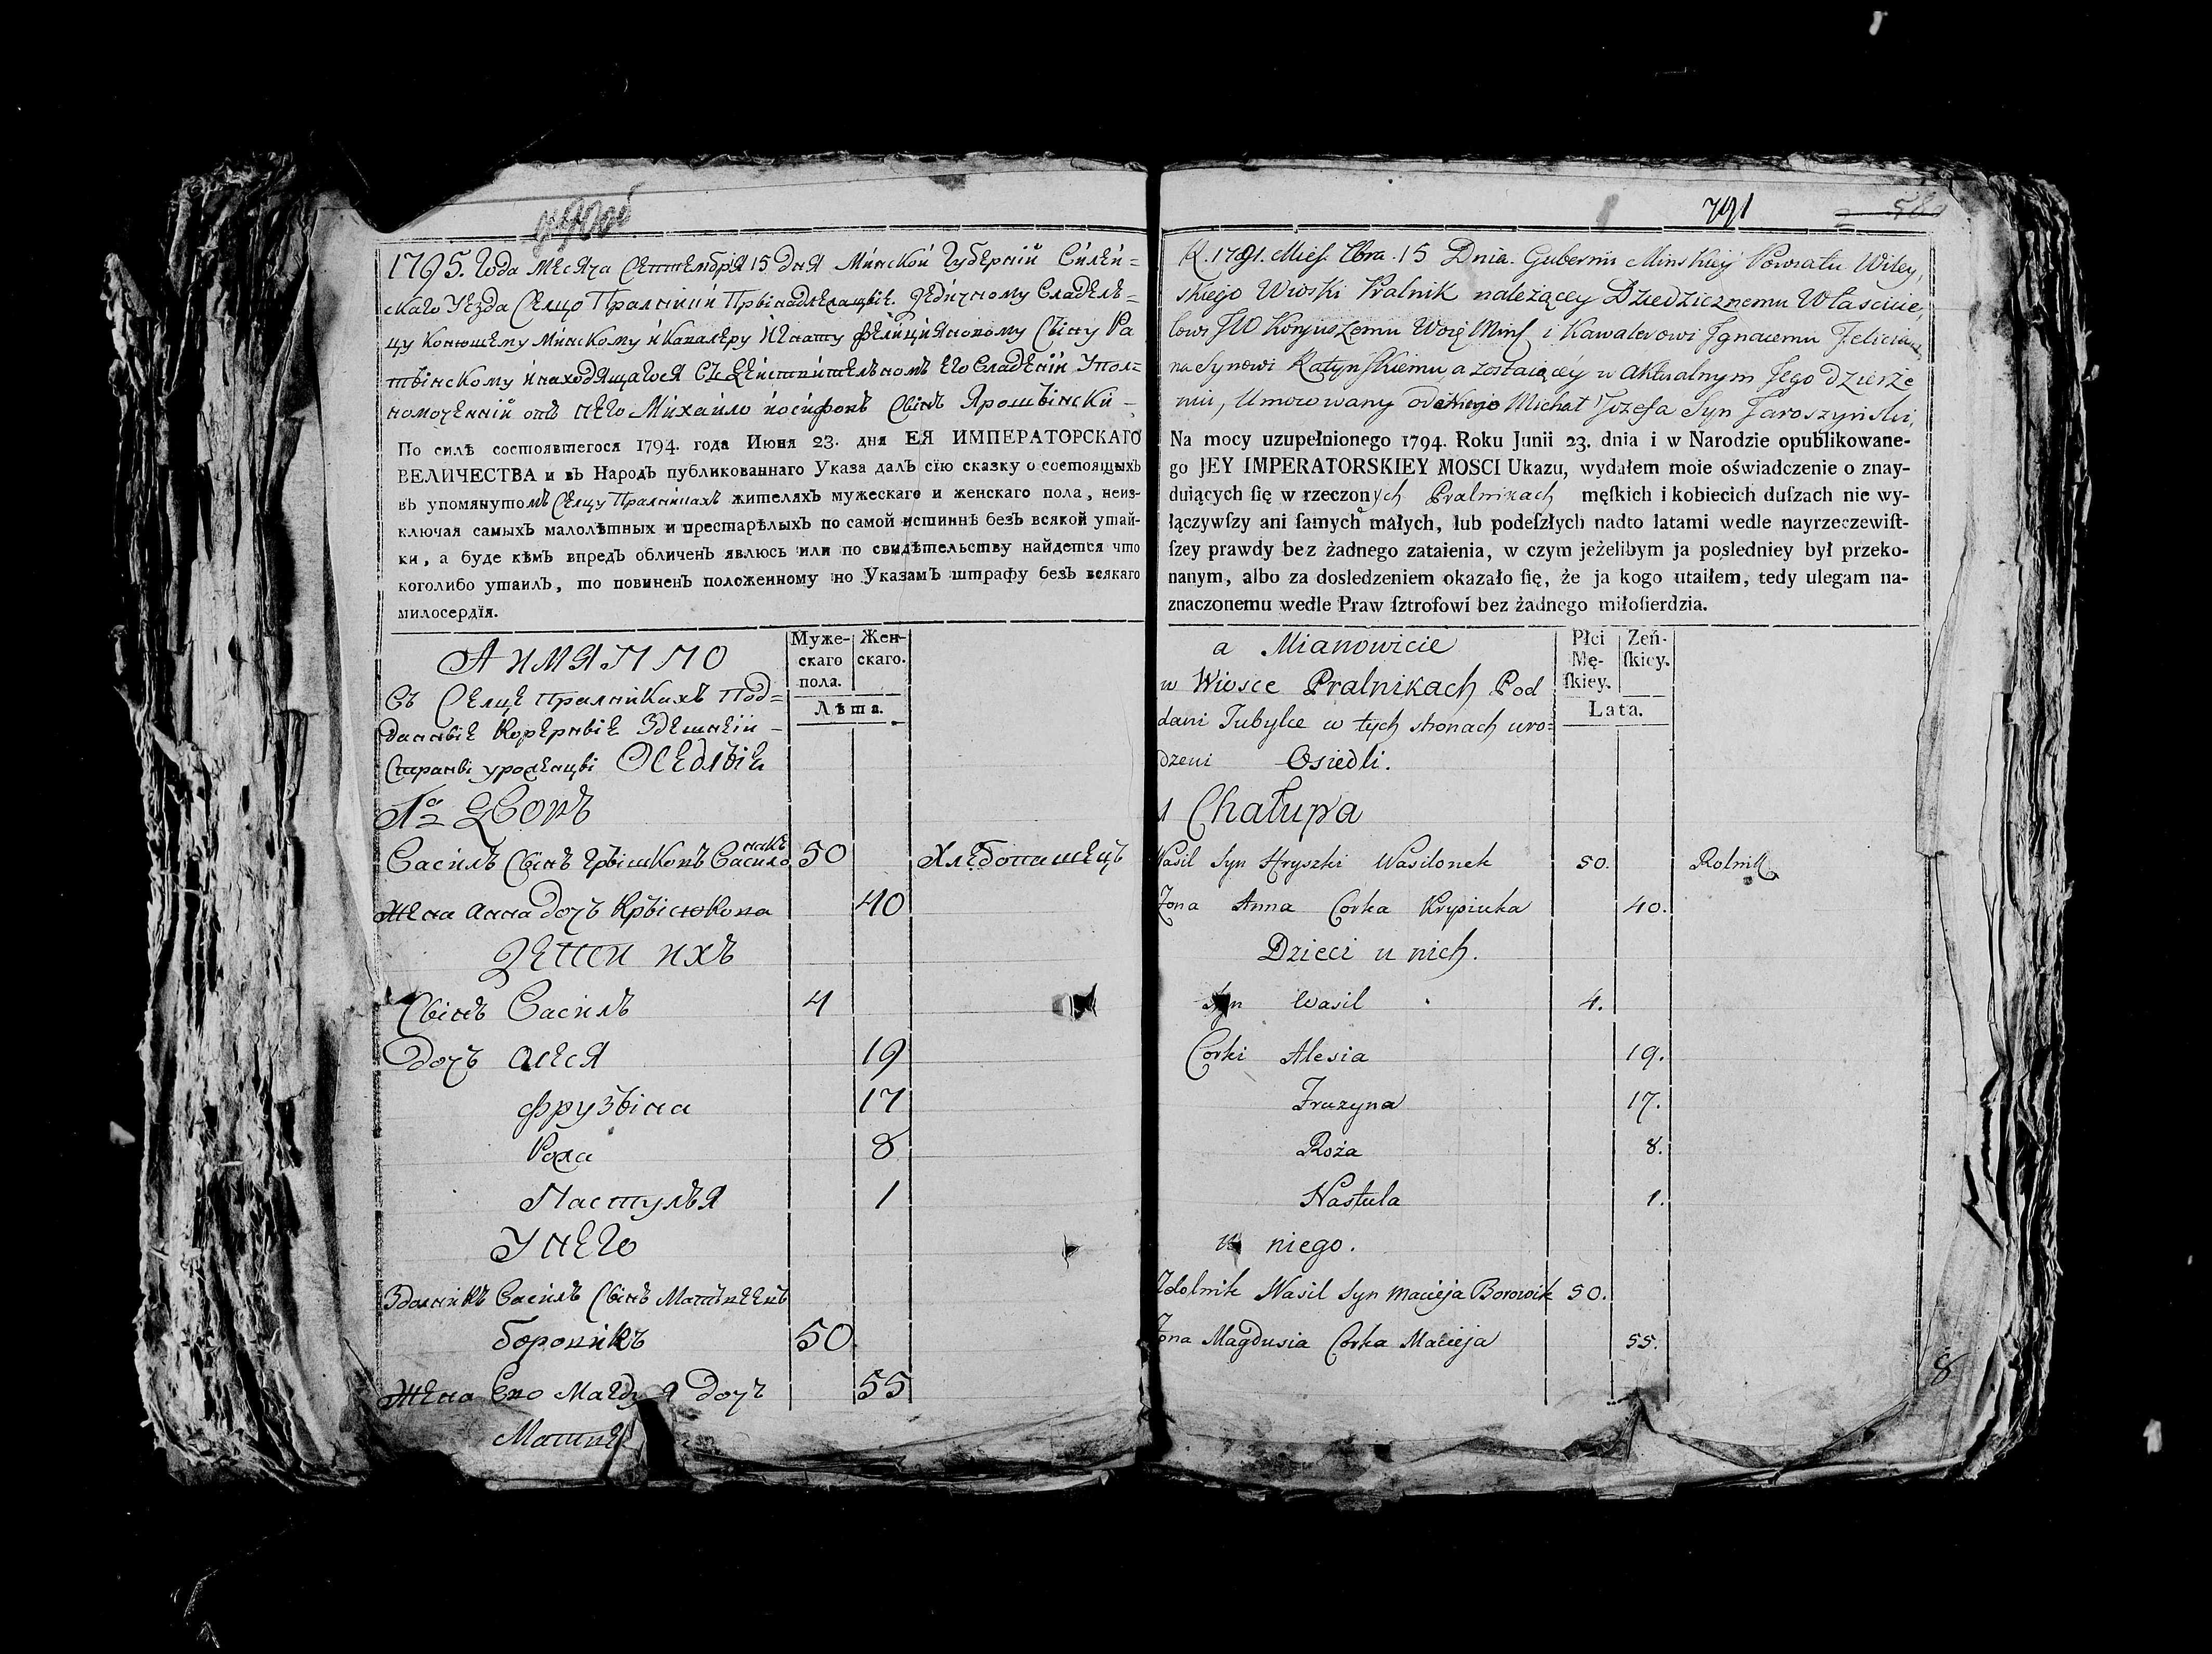 1795. Года Месяца Сентембрiя 15 дня Минской Губернiй Вилей=
скаго Уезда Селцо Пралники Прынадлежащые. Дедичному Владель=
цу Конюшему Минскому и Кавалеру Игнату Фелицияновому Сыну Ра
тынскому и находящагося въ действителномъ его владенiй Упол=
номоченнiй отъ него Михайло Иосифовъ Сынъ Ярошынски
По силѣ состоявшегося 1794. года Июня 23. дня ЕЯ ИМПЕРАТОРСКАГО
ВЕЛИЧЕСТВА и въ Народъ публикованнаго Указа далъ сїю сказку о состоящыхъ
въ упомянутомъ Селцу Пралникахъ жителяхъ мужескаго и женскаго пола, неиз-
ключая самыхъ малолѣтныхъ и престарѣлыхъ по самой истиннѣ безъ всякой утай-
ки, а буде кѣмъ впредъ обличенъ явлюсь или по свидѣтельству найдется что
коголибо утаилъ, то повиненъ положенному но Указамъ штрафу безъ всякаго
милосердїя.
А ИМЯННО
Муже-
скаго
пола.
Жен-
скаго.
Лѣта.
Въ Селце Пралникахъ Под=
данные Коренные Здешней
Страны уроженцы Оседлые
№ 1 Дворъ
Василъ Сынъ Грышковъ Василонакъ 50 Хлебопашецъ
Жена Анна дочъ Крысюкова 40
Дети ихъ
Сынъ Василъ 4
Дочъ Олеся 19
Фрузына 17
Рожа 8
Настулья 1
У него
Здолникъ Василъ Сынъ Матвеевъ
Боровикъ 50
Жена Ево Магду я дочъ 55
791
R. 1791. Mies. 7bra. 15 Dnia. Gubernii Minskiey Powiatu Wiley,
skiego Wioski Pralnik należącey Dziedzicznemu Właścicie,
lowi JW Konjuszemu Woje Mins i Kawalerowi Ignacemu Felicia
na Synowi Ratyńskiemu, a zostaiącey w Aktualnym Jego dzierże
niu, Umocowany od Niego Michał Jozefa Syn Jaroszyński,
Na mocy uzupełnionego 1794. Roku Junii 23. dnia i w Narodzie opublikowane-
go JEY IMPERATORSKIEY MOSCI Ukazu, wydałem moie oświadczenie o znay-
duiących ſię w rzeczonych Pralnikach męſkich i kobiecich duſzach nie wy-
łączywſzy ani ſamych małych, lub podeſzłych nadto latami wedle nayrzeczewiſt-
ſzey prawdy bez żadnego zataienia, w czym jeżelibym ja posledniey był przeko-
nanym, albo za dosledzeniem okazało ſię, że ja kogo utaiłem, tedy ulegam na-
znaczonemu wedle Praw ſztrofowi bez żadnego miłoſierdzia.
a Mianowicie
Płci
Mę-
ſkiey.
Zeń-
ſkiey.
Lata.
w Wiosce Pralnikach Pod
dani Tubylce w tych stronach uro=
dzeni Osiedli.
1 Chałupa
Wasil Syn Hryszki Wasilonek 50. Rolnik
Żona Anna Corka Krysiuka 40.
Dzieci u nich.
Syn Wasil 4.
Corki Alesia 19.
Fruzyna 17.
Roża 8.
Nastula 1.
u niego.
Zdolnik Wasil Syn Macieja Borowik 50.
Żona Magdusia Corka Macieja 55.
8